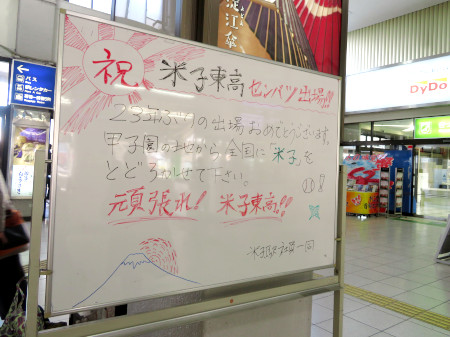 淀江傘
祝 米子東高 センバツ出場!!!
23年ぶりの出場おめでとうございます。
甲子園の地から全国に「米子」を
とどろかせて下さい。
頑張れ! 米子東高!!
米子駅社員一同
バス
DyDo